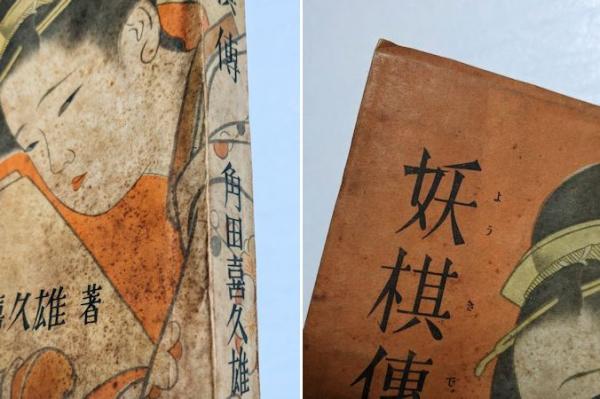 傳 角田喜久雄
喜久雄 著
妖棋傳
ようきで